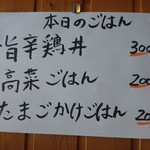 本日のごはん
旨辛鶏丼 300
高菜ごはん 200
たまごかけごはん 20